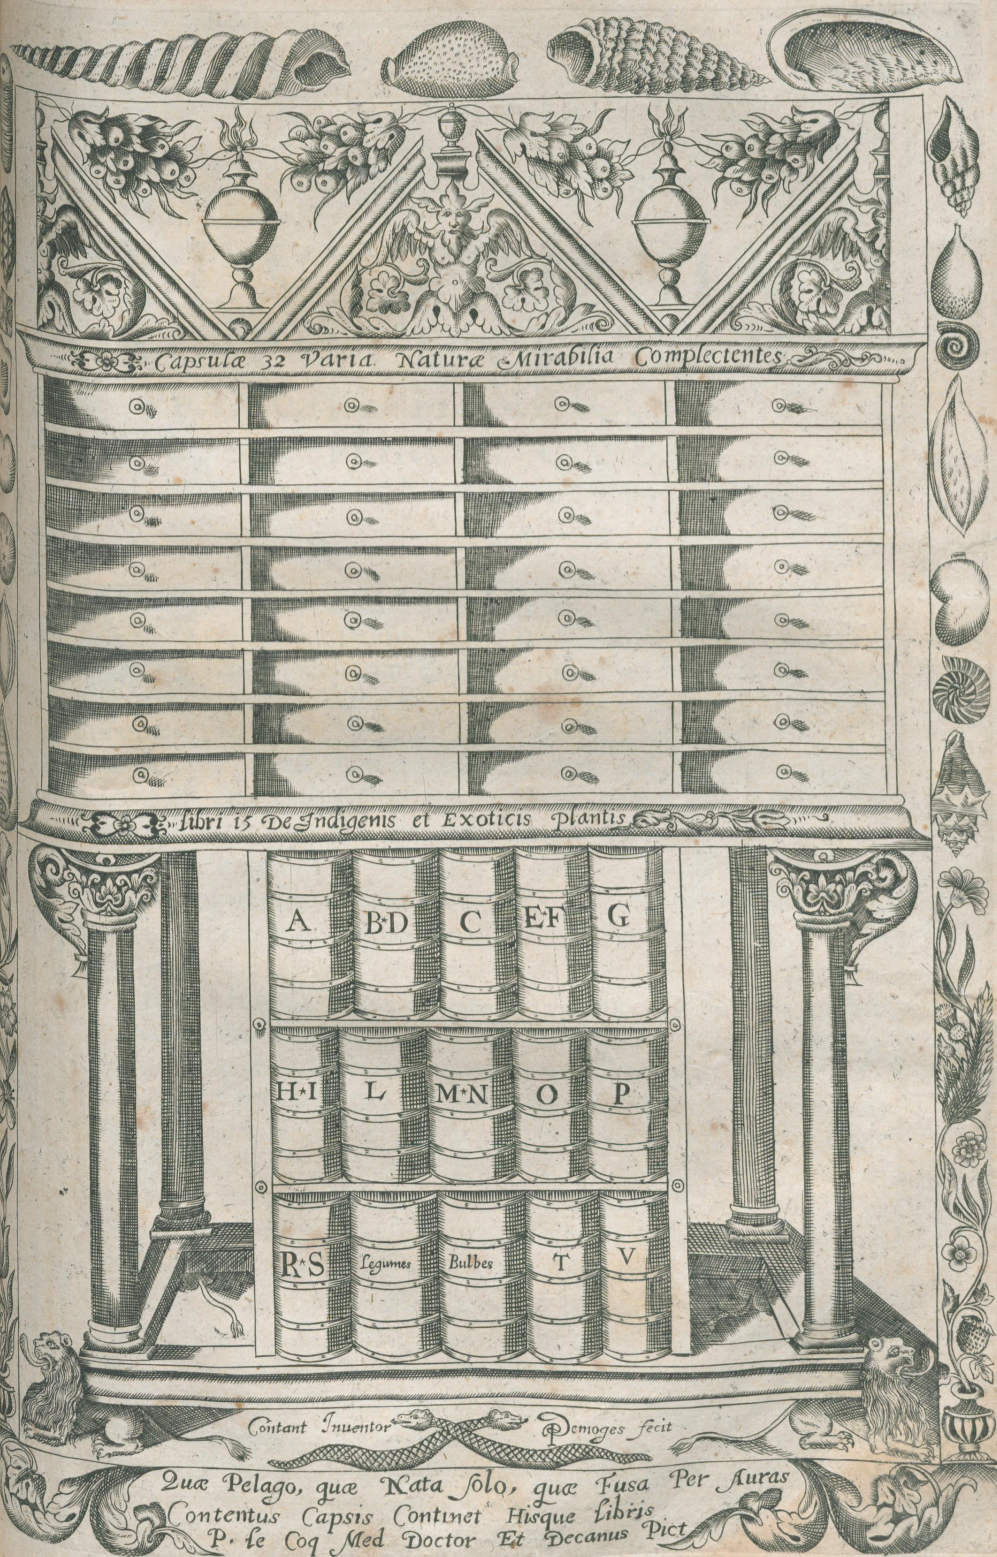 Capsulæ 32 Varia Naturæ Mirabilia Complectentes
libri 15 De Indigenis et Exoticis plantis
A B·D C E·F G
H*I L M*N O P
R*S Legumes Bulbes T V
Contant Inventor Demoges fecit
Quæ Pelago, quæ Nata solo, quæ Fusa Per Auras
Contentus Capsis Continet Hisque libris
P. le Coq Med Doctor Et Decanus Pict